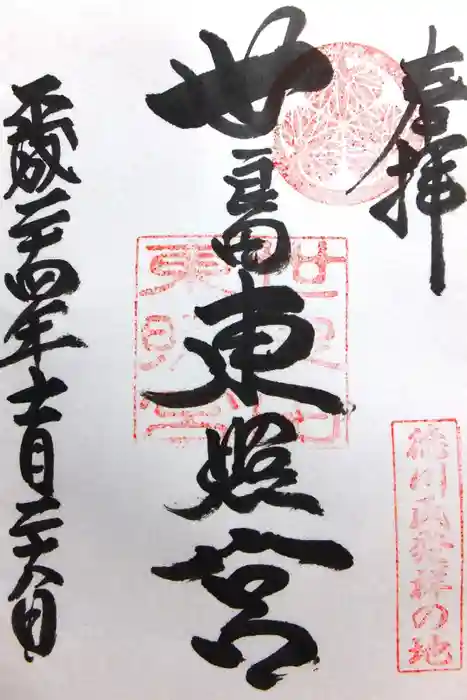 奉拝
世良田東照宮
世良田東照宮
徳川氏発祥の地
平成二十四年十一月二十八日